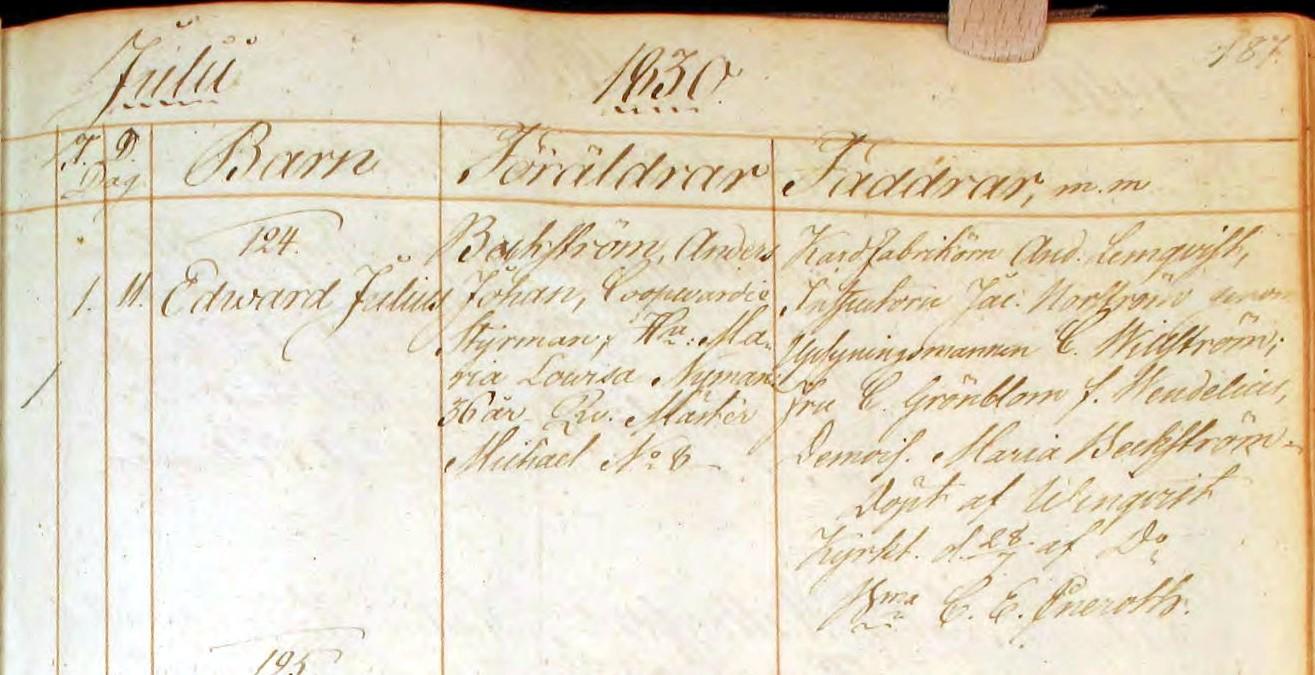 Julii 1830. 187.
F. D. Dag. Barn Föräldrar Faddrar, m.m
124.
1. 11. Edward Julius
Beckström, Anders
Johan, Coopvardie
Styrman, Hu: Ma-
ria Lowisa Nyman
36 år Qv. Mäster
Michael No 8
Kardfabrikörn And. Lemqvist,
Inspectorn Jac. Norström
Upsyningsmannen C. Wikström;
fru C. Grönblom f. Wendelius,
Demois. Maria Beckström
döpt af Winqvist
Kyrkt. d. 28/7 af Do
C. E. Eneroth.
125